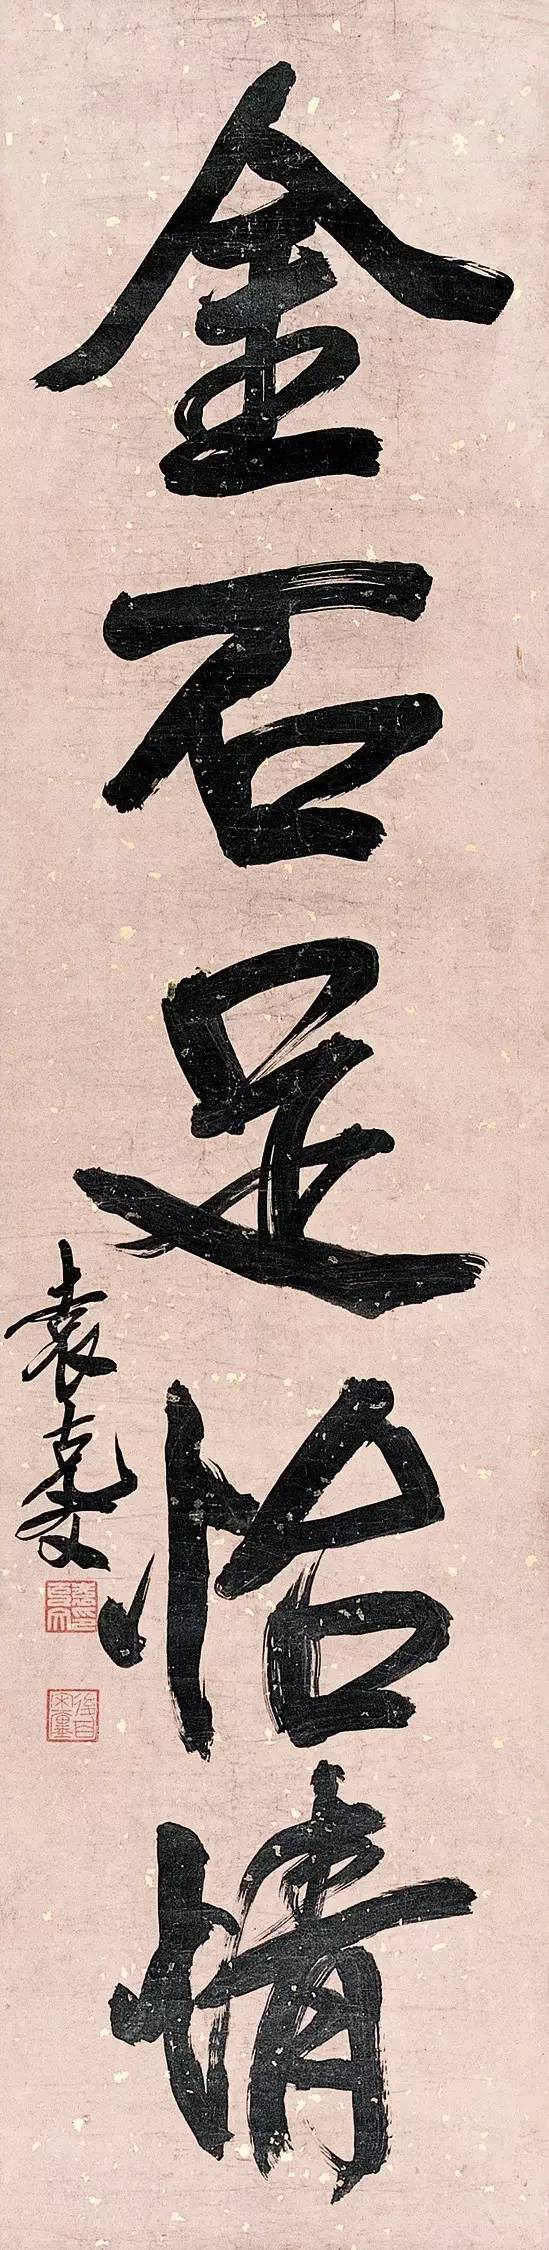 金石足怡情
袁克文